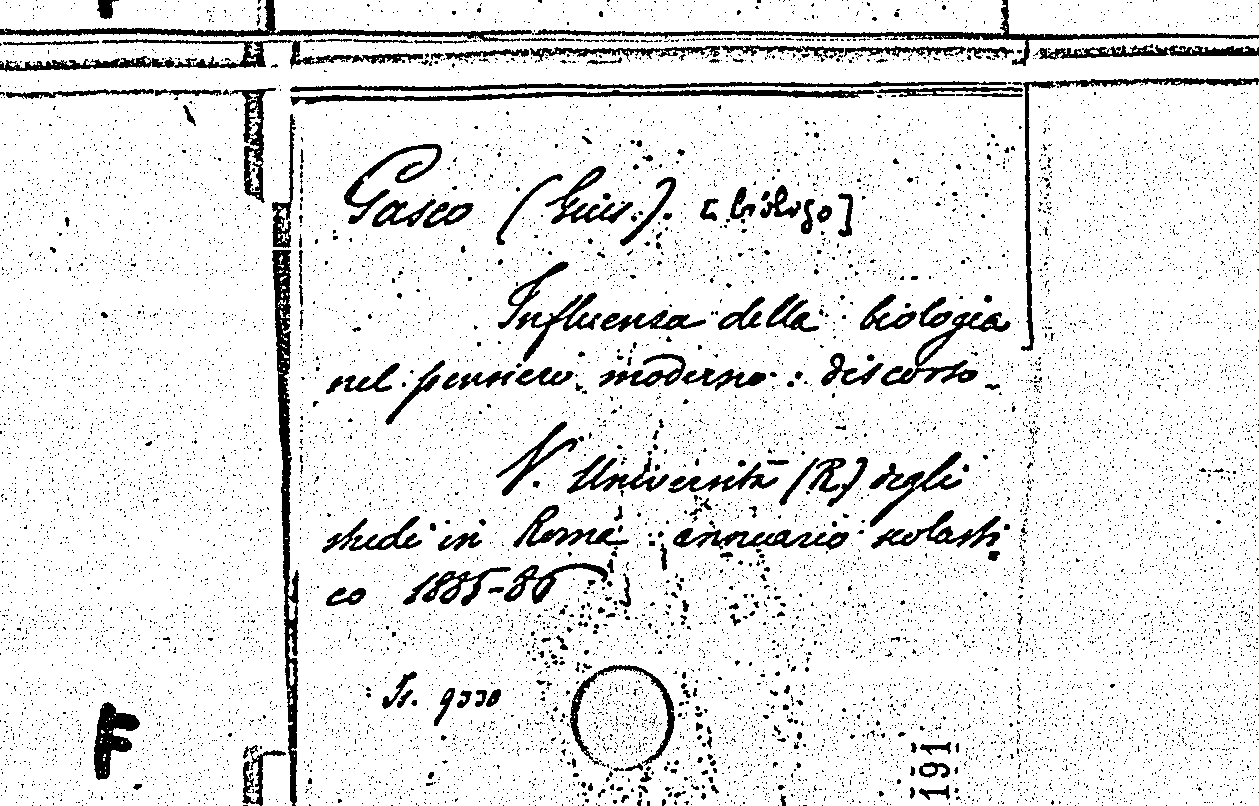 Gasco (Gius.). [biologo]
Influenza della biologia
nel pensiero moderno: discorso.
V. Università (R.) degli
studi in Roma: annuario scolasti
co 1885-86
F
191